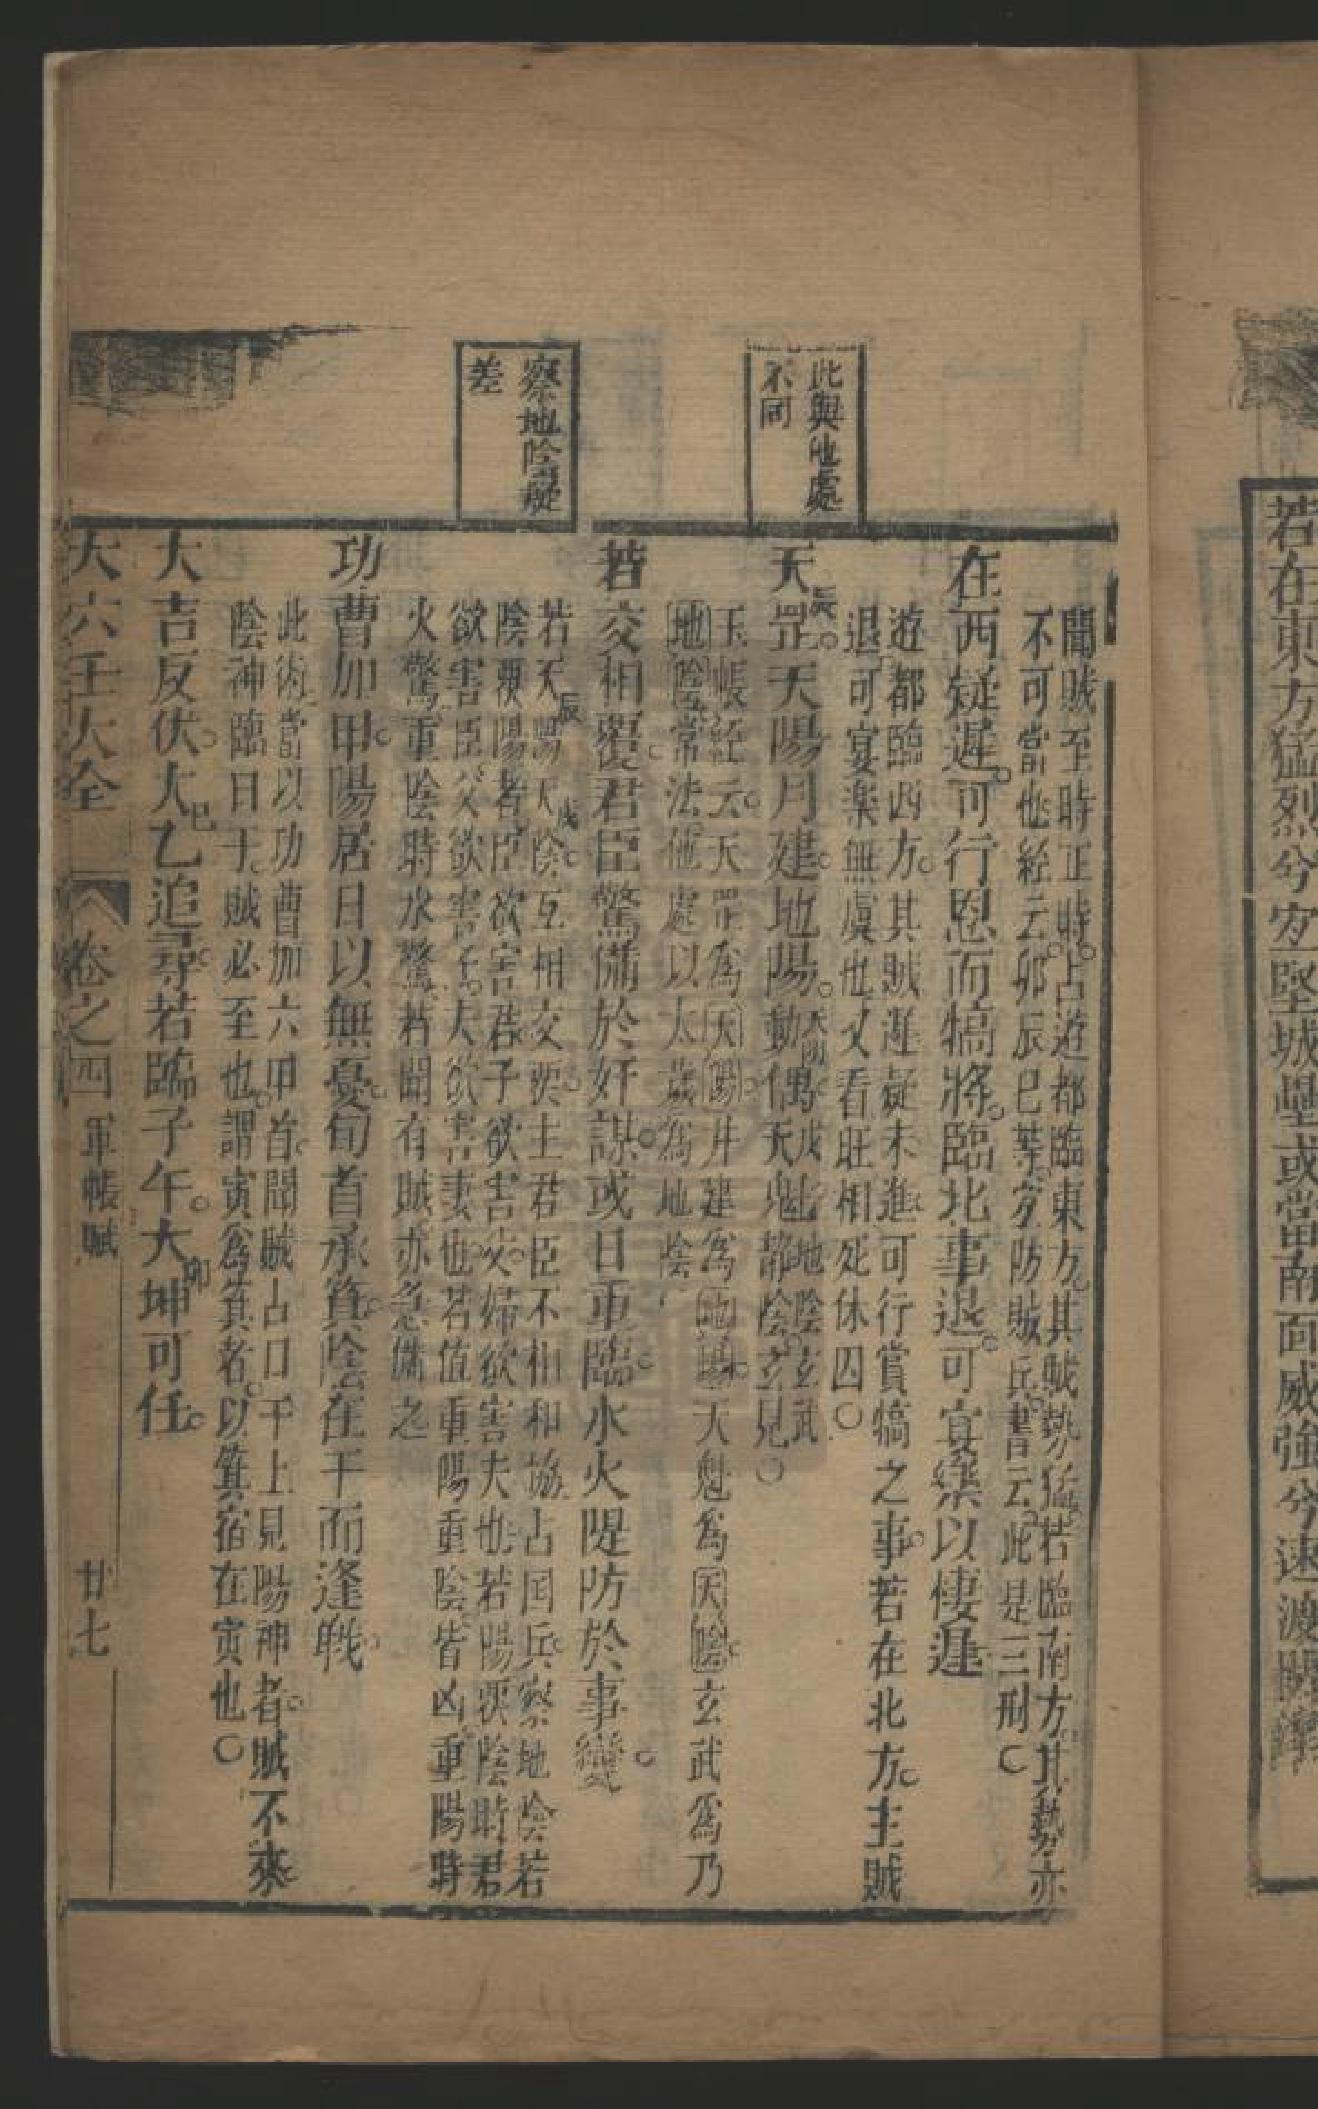 若在東方猛烈兮宜堅城壘或當南面威強兮速渡關
此與他處
不同
察地陰疑
差
聞賊至時正時占遊都臨東方其賊勢猛若臨南方其勢亦
不可當也經云卯辰巳葉宜防賊兵書云此是三刑〇
在西疑遲可行恩而犒將臨北事退可宴樂以悽遲
遊都臨西方其賊遲疑未進可行賞犒之事若在北方主賊
退可宴楽無虞也又看旺相死休囚〇
天罡辰天陽月建地陽動偶天魁戌地陰玄武靜陰立見〇
玉帳経云天罡為天陽月建為地陽天魁為天陰玄武為乃
地陰常法他處以太歲為地陰
若交相覆君臣驚備於奸謀或日重臨水火隄防於事變
若天陽辰天陰戌互相交要主君臣不相和協占国兵察地陰若
陰要陽者臣欲害君子欲害父婦欲害夫也若陽要陰時君
欲害臣父欲害子夫欲害妻也若值重陽重陰皆凶重陽時
火驚重陰時水驚若聞有賊亦急備之
功曹加甲陽居日以無憂旬首承箕陰在干而逢戰
此術當以功曹加六甲首聞賊占日干上見陽神者賊不來
陰神臨日干賊必至也謂寅為箕者以箕宿在寅也〇
大吉反伏大乙巳追尋若臨子午大坤卯可任
大六壬大全 卷之四 軍帳賦 廿七